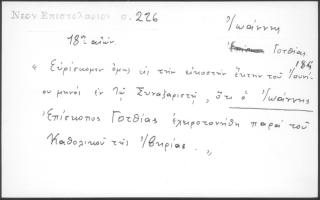 Νεον Επιστολαριον σ. 226
Ἰωάννης
Γοτθίας
18ος αἰών
184
« Εὑρίσκομεν ὅμως εἰς τὴν εἰκοστὴν ἕκτην τοῦ Ἰουνί-
ου μηνὸς ἐν τῷ Συναξαριστῇ, ὅτι ὁ Ἰωάννης
Ἐπίσκοπος Γοτθίας ἐχειροτονήθη παρὰ τοῦ
Καθολικοῦ τῆς Ἰβηρίας. »